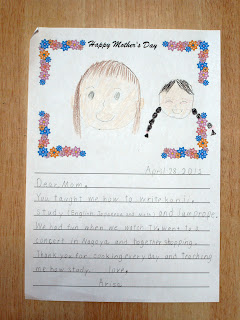 Happy Mother's Day
April 28, 2012
Dear Mom,
You taught me how to write kanji,
study (English, Japanese and math) and jump rope.
We had fun when we went to a
concert in Nagoya and together shopping.
Thank you for cooking everyday and teaching
me how study. love,